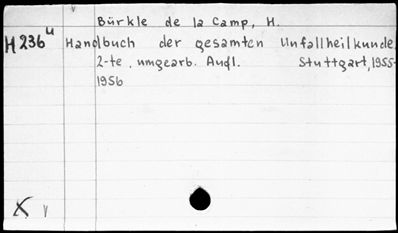 Bürkle de la Camp, H.
H 236 u Handbuch der gesamten Unfallheilkunde.
2-te, umgearb. Aufl. Stuttgart, 1955-
1956
X v